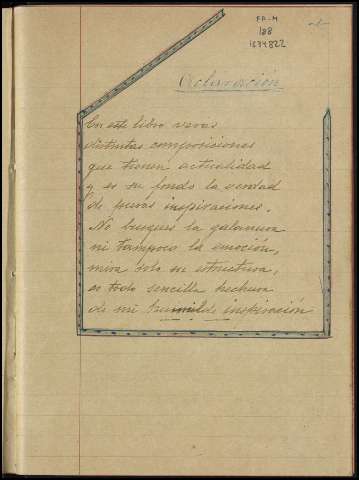 FA-M
188
1634822
-1-
Aclaración
En este libro veras
distintas composisiones
que tienen actualidad
y es su fondo la verdad
de puras inspiraciones.
No busques la galanura
ni tampoco la emoción,
mira solo su estructura,
es todo sencilla hechura
de mi humilde inspiración